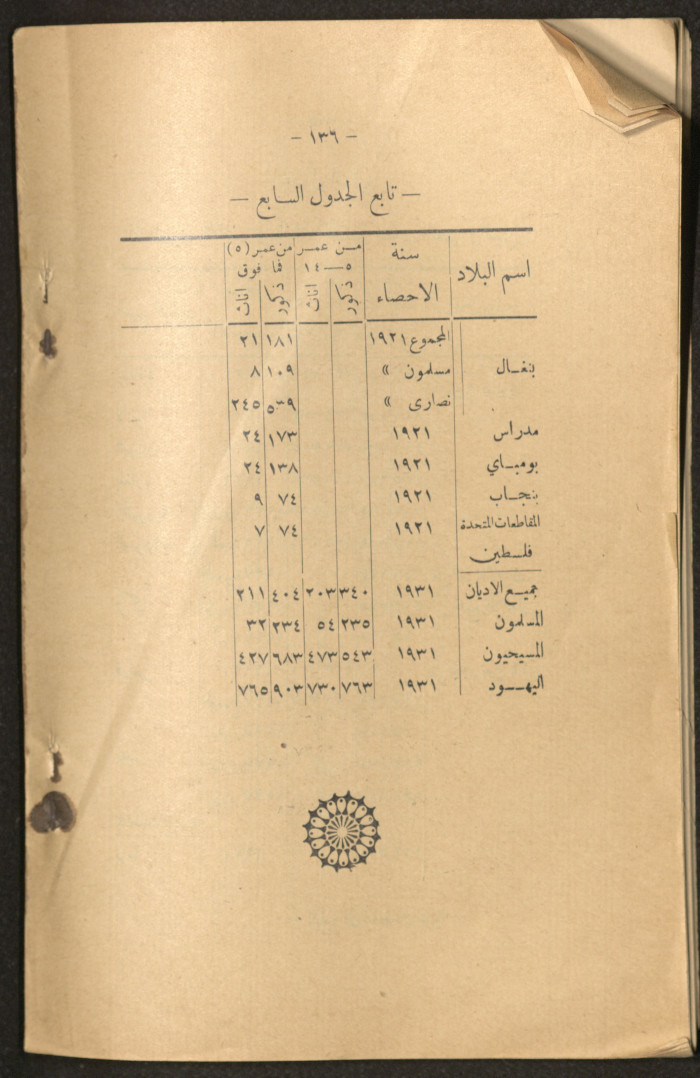 — ١٣٦ —
— تابع الجدول السابع —
اسم البلاد سنة الاحصاء من عمر ٥—١٤ من عمر (٥) فما فوق
ذكور اناث ذكور اناث
المجموع ١٩٢١ ١٨١ ٢١
بنغال مسلمون » ١٠٩ ٨
نصارى » ٥٣٩ ٢٤٥
مدراس ١٩٢١ ١٧٣ ٢٤
بومباي ١٩٢١ ١٣٨ ٢٤
بنجاب ١٩٢١ ٧٤ ٩
المقاطعات المتحدة ١٩٢١ ٧٤ ٧
فلسطين
جميع الاديان ١٩٣١ ٣٤٠ ٢٠٣ ٤٠٤ ٢١١
المسلمون ١٩٣١ ٢٣٥ ٥٤ ٢٣٤ ٣٢
المسيحيون ١٩٣١ ٥٤٣ ٤٧٣ ٦٨٣ ٤٢٧
اليهود ١٩٣١ ٧٦٣ ٧٣٠ ٩٠٣ ٧٦٥